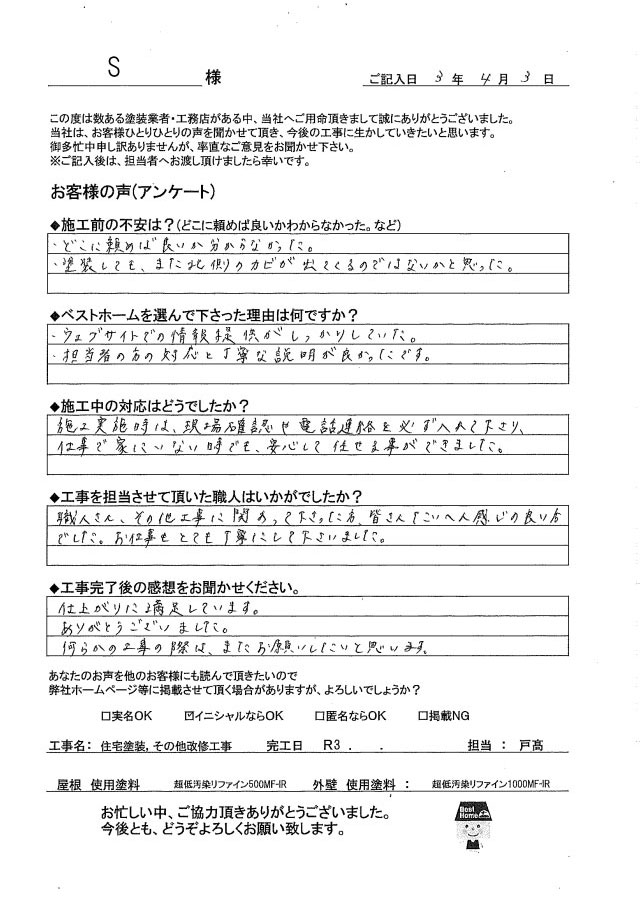 S 様 ご記入日 3 年 4 月 3 日
この度は数ある塗装業者・工務店がある中、当社へご用命頂きまして誠にありがとうございました。
当社は、お客様ひとりひとりの声を聞かせて頂き、今後の工事に生かしていきたいと思います。
御多忙中申し訳ありませんが、率直なご意見をお聞かせ下さい。
※ご記入後は、担当者へお渡し頂けましたら幸いです。
お客様の声(アンケート)
◆施工前の不安は？(どこに頼めば良いかわからなかった。など)
・どこに頼めば良いか分からなかった。
・塗装しても、また北側のカビが出てくるのではないかと思った。
◆ベストホームを選んで下さった理由は何ですか？
・ウェブサイトでの情報提供がしっかりしていた。
・担当者の方の対応と丁寧な説明が良かったです。
◆施工中の対応はどうでしたか？
施工実施時は、現場確認や電話連絡を必ず入れて下さり、
仕事で家にいない時でも、安心して任せる事ができました。
◆工事を担当させて頂いた職人はいかがでしたか？
職人さん、その他工事に関わって下さった方、皆さんすごい人感じの良い方
でした。お仕事もとても丁寧にして下さいました。
◆工事完了後の感想をお聞かせください。
仕上がりに満足しています。
ありがとうございました。
何らかの工事の際は、またお願いしたいと思います。
あなたのお声を他のお客様にも読んで頂きたいので
弊社ホームページ等に掲載させて頂く場合がありますが、よろしいでしょうか？
□実名OK ☑イニシャルならOK □匿名ならOK □掲載NG
工事名： 住宅塗装,その他改修工事 完工日 R3 . . 担当 ： 戸髙
屋根 使用塗料 超低汚染リファイン500MF-IR 外壁 使用塗料 ： 超低汚染リファイン1000MF-IR
お忙しい中、ご協力頂きありがとうございました。
今後とも、どうぞよろしくお願い致します。
Best
Home